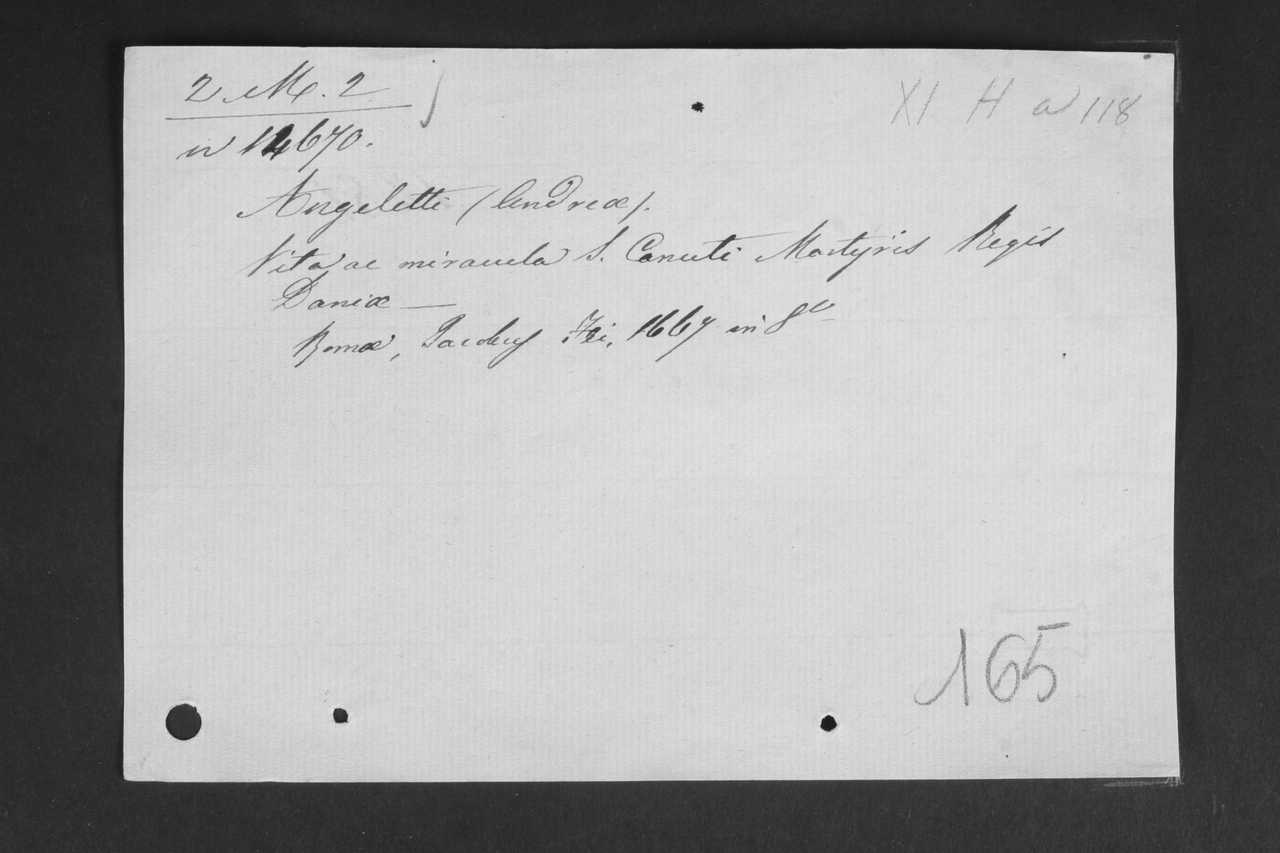 2. M. 2
XI H a 118
n 14670.
Angeletti (Andreæ).
Vita ac miracula S. Canuti Martyris Regis
Daniæ —
Romæ, Jacobus Fei, 1667 in 8º
165